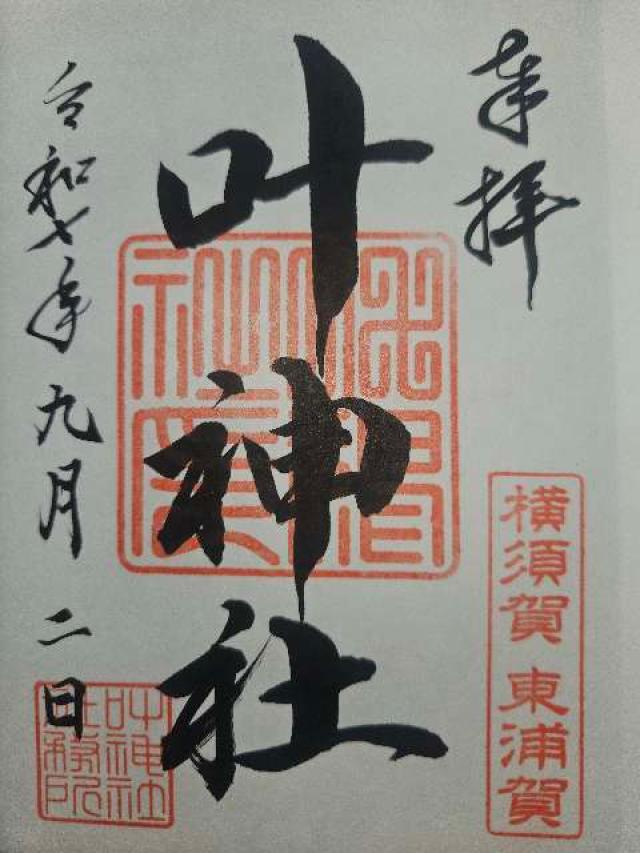 奉拝
横須賀 東浦賀
叶神社
令和七年九月二日
叶神社
社務所